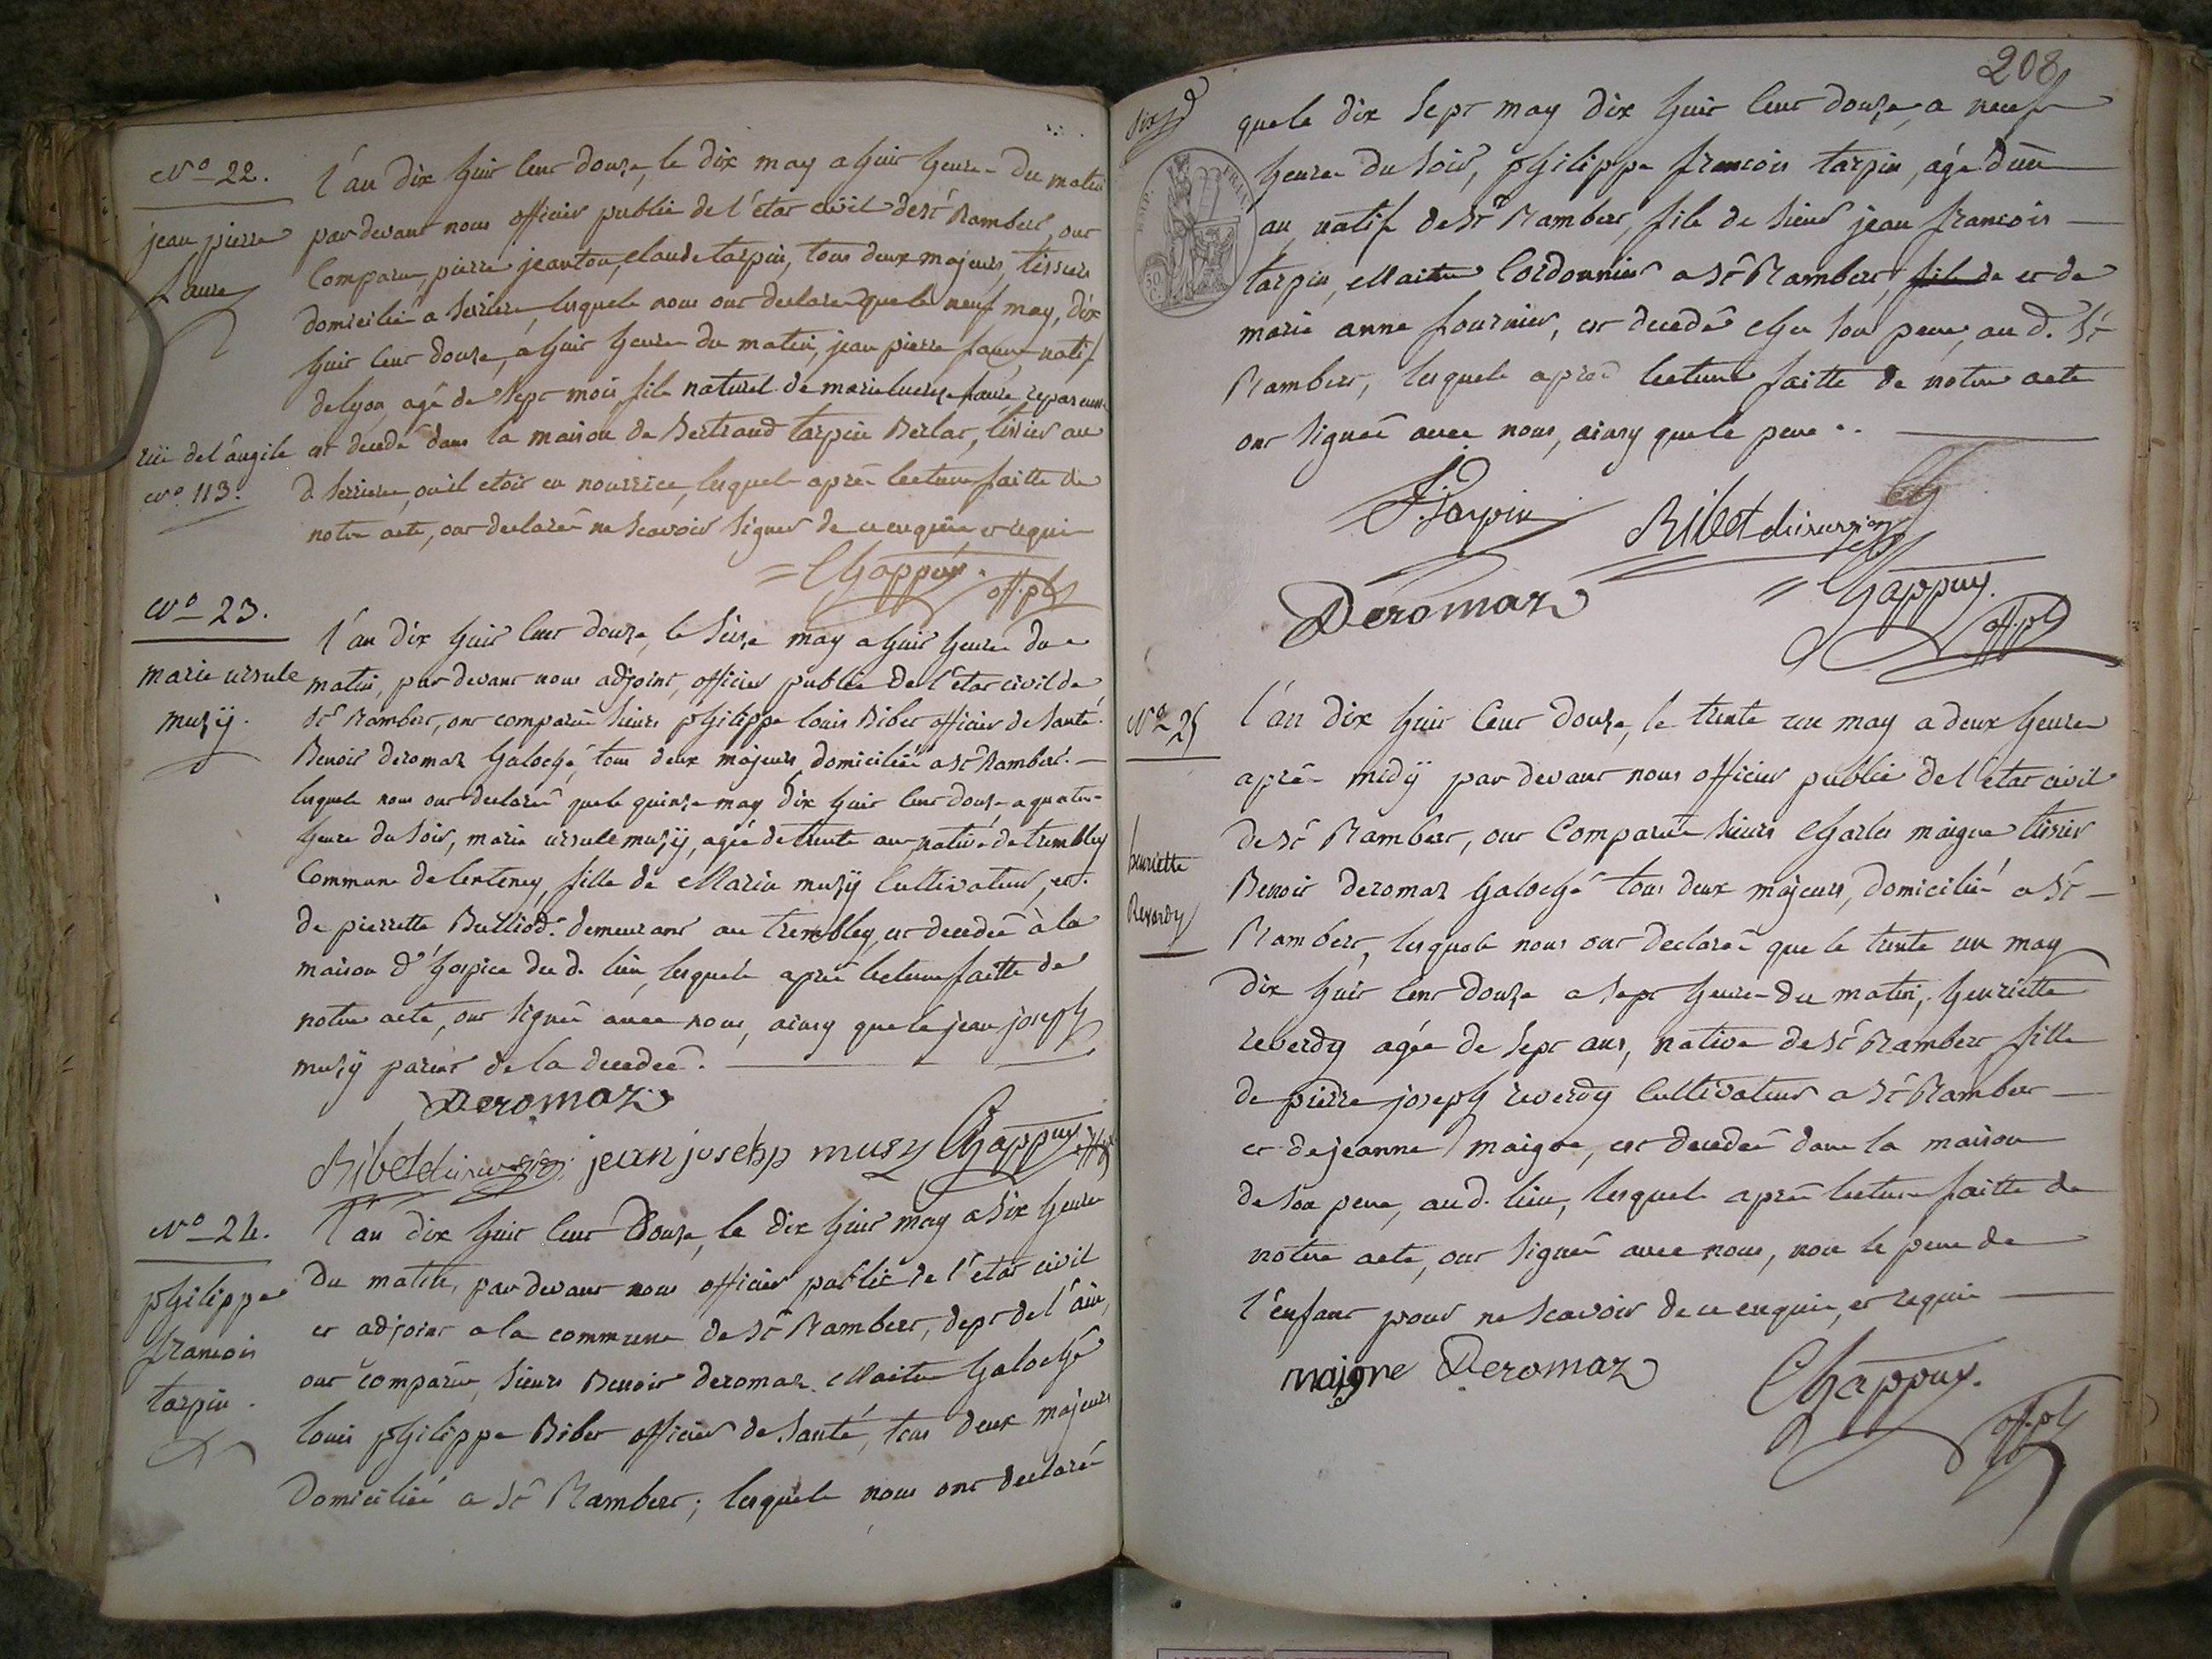 N° 22.
jean pierre
faure
rüe de l'angile
N° 113.
l'an dix huit cent douze, le dix may a huit heures du matin
par devant nous officier public de l'état civil de St Rambert, ont
Comparu, pierre jeanton, claude tarpin, tous deux majeurs, tissiers
domiciliés a serriere, lesquels nous ont declaré que le neuf may, dix
huit cent douze, a huit heures du matin, jean pierre faure natif
de lyon, agé de sept mois, fils naturel de marie faure,
est decedé dans la maison de Bertrand tarpin Berlat, tissier au
d. serriere, ou il etoit en nourrice, lesquels après lecture faitte de
notre acte, ont declarés ne scavoir signer de ce enquis et requis
Chappuy. off. pb
N° 23.
marie ursule
muzÿ.
l'an dix huit cent douze, le seize may a huit heures du
matin, par devant nous adjoint, officier public de l'état civil de
St Rambert, ont comparu sieurs philippe louis Ribet officier de santé.
Benoit deromaz Galoché, tous deux majeurs, domiciliés a St Rambert.
lesquels nous ont declaré que le quinze may dix huit cent douze a quatre
heures du soir, marie ursule muzÿ, agée de trente ans, native de trembley
Commune de centeney, fille de Marin muzÿ Cultivateur, et
de pierrette Bulliod. demeurant au trembley, est decedée à la
maison d'hospice du d. lieu, lesquels après lecture faitte de
notre acte, ont signés avec nous, ainsy que le jean joseph
muzÿ parent de la decedée.
Deromaz
Ribet chirurgien jean josehp muzy Chappuy off. pb
N° 24.
philippe
francois
tarpin.
l'an dix huit cent Douze, le dix huit may a six heures
du matin, par devant nous officier public de l'état civil
et adjoint a la commune de St Rambert, dept de l'ain,
ont comparu, sieurs Benoit deromaz. Maitre Galoché
louis philippe Ribet officier de santé, tous deux majeurs
Domiciliés a St Rambert; lesquels nous ont declaré
208
EMP. FRAN.
50
que le dix sept may dix huit cent douze, a neuf
heures du soir, philippe francois tarpin, agé d'un
an, natif de St Rambert, fils de sieur jean francois
tarpin, Maitre Cordonnier a St Rambert, fils de et de
marie anne fournier, est decedé chez son pere, au d. St
Rambert, lesquels après lecture faitte de notre acte
ont signés avec nous, ainsy que le pere.
Tarpin
Ribet chirurgien
Deromaz
Chappuy.
off. pb
N° 25
henriette
Reverdy
l'an dix huit cent douze, le trente un may a deux heures
après midÿ par devant nous officier public de l'état civil
de St Rambert, ont Comparu sieurs Charles maigne tissier
Benoit deromaz Galoché tous deux majeurs, domicilié a St
Rambert, lesquels nous ont declarés que le trente un may
dix huit cent douze a sept heures du matin, henriette
reverdy agée de sept ans, native de St Rambert fille
de pierre joseph reverdy Cultivateur a St Rambert
et de jeanne maigne, est decedée dans la maison
de son pere, au d. lieu, lesquels après lecture faitte de
notre acte, ont signés avec nous, non le pere de
l'enfant pour ne scavoir de ce enquis, et requis
maigne Deromaz
Chappuy.
off. pb